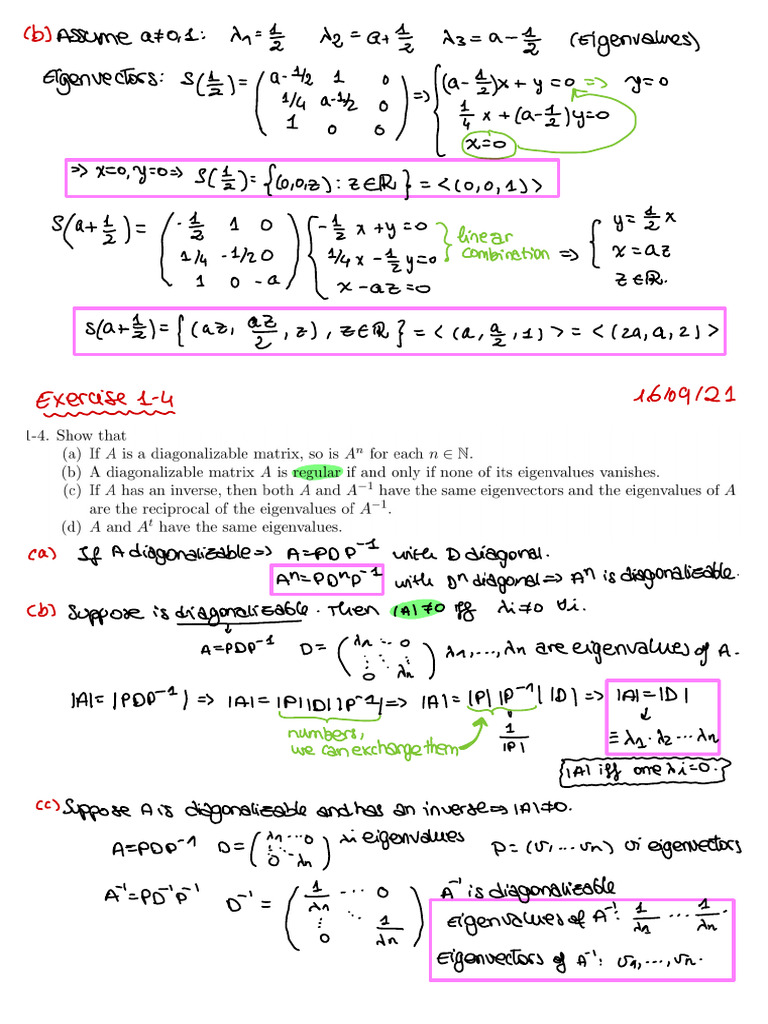 (b) Assume a≠0,1: λ1=1/2 λ2=a+1/2 λ3=a-1/2 (Eigenvalues)
Eigenvectors: S(1/2)= (a-1/2 1 0; 1/4 a-1/2 0; 1 0 0) => { (a-1/2)x+y=0 => y=0
1/4 x+(a-1/2)y=0
x=0
=> x=0, y=0 => S(1/2)={(0,0,z): z∈ℝ} = <(0,0,1)>
S(a+1/2)= (-1/2 1 0; 1/4 -1/2 0; 1 0 -a) { -1/2 x+y=0; 1/4x-1/2y=0; x-az=0 } linear combination => { y=1/2 x; x=az; z∈ℝ.
S(a+1/2)={(az, az/2, z), z∈ℝ} = <(a, a/2, 1)> = <(2a, a, 2)>
Exercise 1-4 16/09/21
1-4. Show that
(a) If A is a diagonalizable matrix, so is Aⁿ for each n ∈ ℕ.
(b) A diagonalizable matrix A is regular if and only if none of its eigenvalues vanishes.
(c) If A has an inverse, then both A and A⁻¹ have the same eigenvectors and the eigenvalues of A
are the reciprocal of the eigenvalues of A⁻¹.
(d) A and Aᵗ have the same eigenvalues.
(a) If A diagonalizable => A=PDP⁻¹ with D diagonal.
Aⁿ=PDⁿP⁻¹ with Dⁿ diagonal => Aⁿ is diagonalizable.
(b) Suppose is diagonalizable. Then |A|≠0 iff λi≠0 ∀i.
A=PDP⁻¹ D= (λn ... 0; ⋮ ⋱ ⋮; 0 λn) λ1,...,λn are eigenvalues of A.
|A|=|PDP⁻¹| => |A|=|P||D||P⁻¹| => |A|=|P||P⁻¹||D| => |A|=|D|
numbers, we can exchange them
1/|P|
≡ λ1·λ2···λn
|A| iff one λi=0.
(c) Suppose A is diagonalizable and has an inverse => |A|≠0.
A=PDP⁻¹ D= (λ1 ··· 0; ⋮ ⋱ ⋮; 0 ··· λn) λi eigenvalues P=(v1 ... vn) vi eigenvectors
A⁻¹=PD⁻¹P⁻¹ D⁻¹= (1/λn ··· 0; ⋮ ⋱ ⋮; 0 1/λn) A⁻¹ is diagonalizable
Eigenvalues of A⁻¹: 1/λ1 ··· 1/λn.
Eigenvectors of A⁻¹: v1,...,vn.